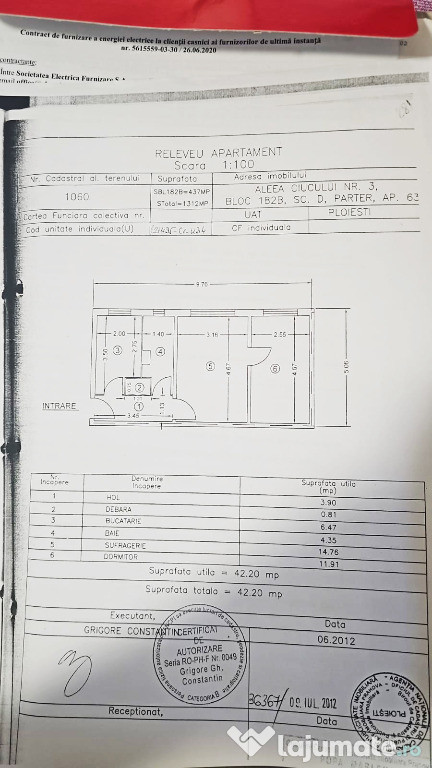 Contract de furnizare a energiei electrice la clienții casnici ai furnizorilor de ultimă instanță
nr. 5615559-03-30 / 26.06.2020
contractante:
Între Societatea Electrica Furnizare S.A.
RELEVEU APARTAMENT
Scara 1:100
Nr. Cadastral al terenului
Suprafata
Adresa imobilului
1060
SBL182B=437MP
STotal=1312MP
ALEEA CIUCULUI NR. 3,
BLOC 182B, SC. D, PARTER, AP. 63
Cartea Funciara colectiva nr.
UAT
PLOIESTI
Cod unitate individuala(U)
CF individuala
9.76
2.00
1.40
3.16
2.55
3.50
2.75
4.67
4.67
5.06
3
4
5
6
2
1
1.13
3.45
INTRARE
Nr. Incapere
Denumire Incapere
Suprafata utila (mp)
1 HOL 3.90
2 DEBARA 0.81
3 BUCATARIE 6.47
4 BAIE 4.35
5 SUFRAGERIE 14.76
6 DORMITOR 11.91
Suprafata utila = 42.20 mp
Suprafata totala = 42.20 mp
Executant,
Data
GRIGORE CONSTANTIN
06.2012
CERTIFICAT
DE
AUTORIZARE
Seria RO-PH-F Nr. 0048
Grigore Gh.
Constantin
CATEGORIA B
36367/ 09 IUL. 2012
Receptionat,
Data
PLOIEȘTI
Lajumate.ro